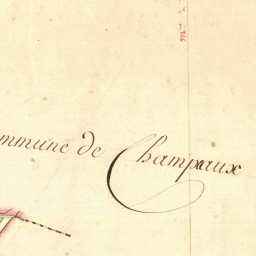 mmune de Champaux